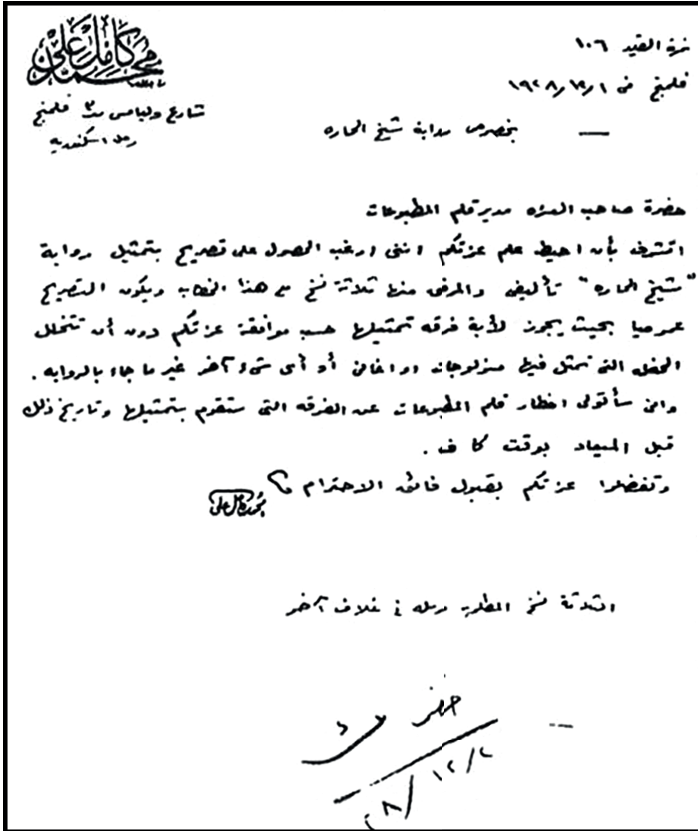 محمد كامل على
شارع وليامس فلمنج
رمل اسكندريه
نمرة القيد ١٠٦
فلمنج فى ١٩٢٨/١٢/١
بخصوص رواية شيخ الحاره
حضرة صاحب العزه مدير قلم المطبوعات
اتشرف بأن احيط علم عزتكم اننى ارغب الحصول على تصريح بتمثيل رواية
"شيخ الحاره" تأليفى والمرفق منها ثلاثة نسخ مع هذا الخطاب ويكون التصريح
عموميا بحيث يجوز لأية فرقه تمثيلها حسب موافقة عزتكم دون أن تتخلل
الحفله التى تمثل فيها منولوجات او اغانى أو أى شىء آخر غير ما جاء بالروايه .
وانى سأتولى اخطار قلم المطبوعات عن الفرقه التى ستقوم بتمثيلها وتاريخ ذلك
قبل الميعاد بوقت كاف .
وتفضلوا عزتكم بقبول فائق الاحترام
محمد كامل على
الثلاثة نسخ المطلوبه مرسله فى غلاف آخر
٢٨/١٢/٢